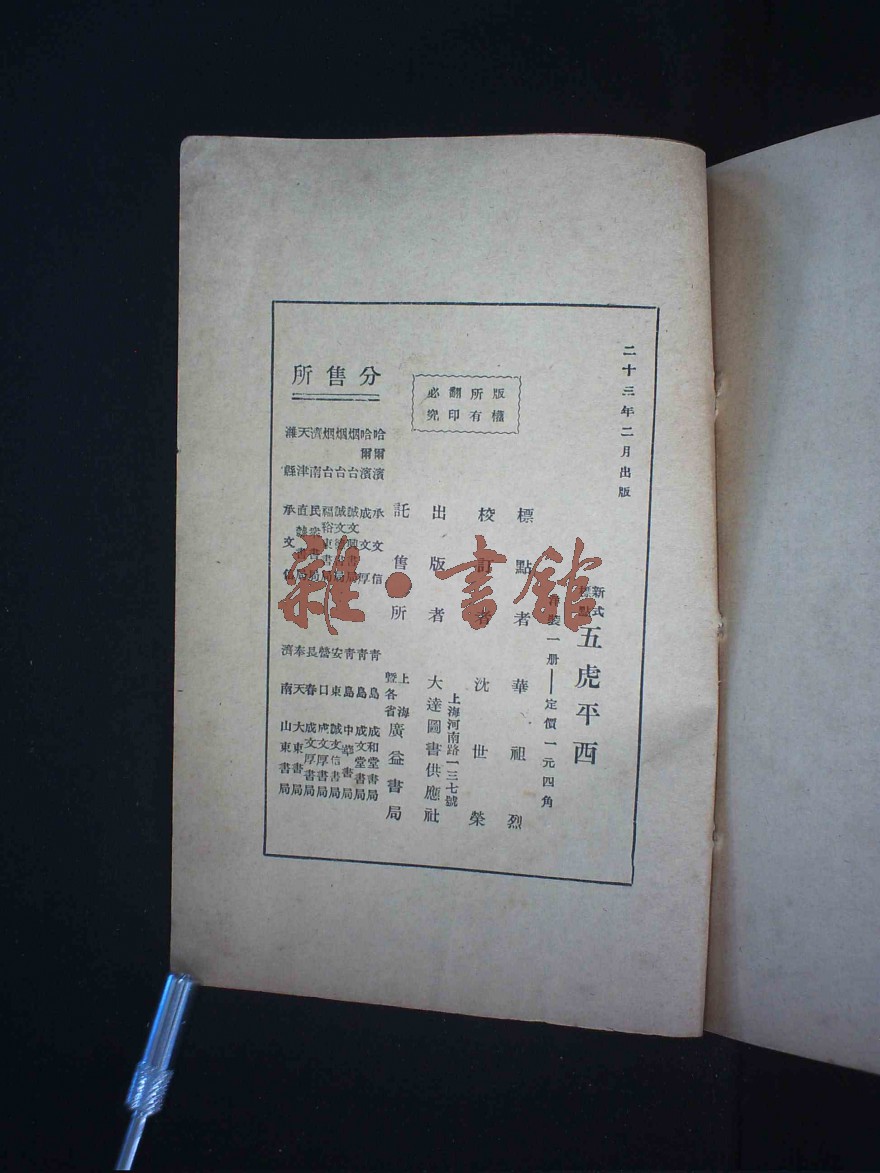 二十三年二月出版
新式
標點
五虎平西
洋裝一册——定價一元四角
版權所有
翻印必究
標點者 華祖烈
校訂者 沈世榮
出版者 大達圖書供應社
上海河南路一三七號
託售所 上海暨各省 廣益書局
分售所
哈爾濱 承文信
哈爾濱 成文厚
烟台 誠文
烟台 誠文
烟台 福裕東書局
濟南 民衆書局
天津 直隸書局
濰縣 承文信
青島 成和堂書局
青島 成文堂書局
青島 中華書局
安東 誠文信書局
營口 成文厚書局
長春 成文厚書局
奉天 大東書局
濟南 山東書局
雜·書館